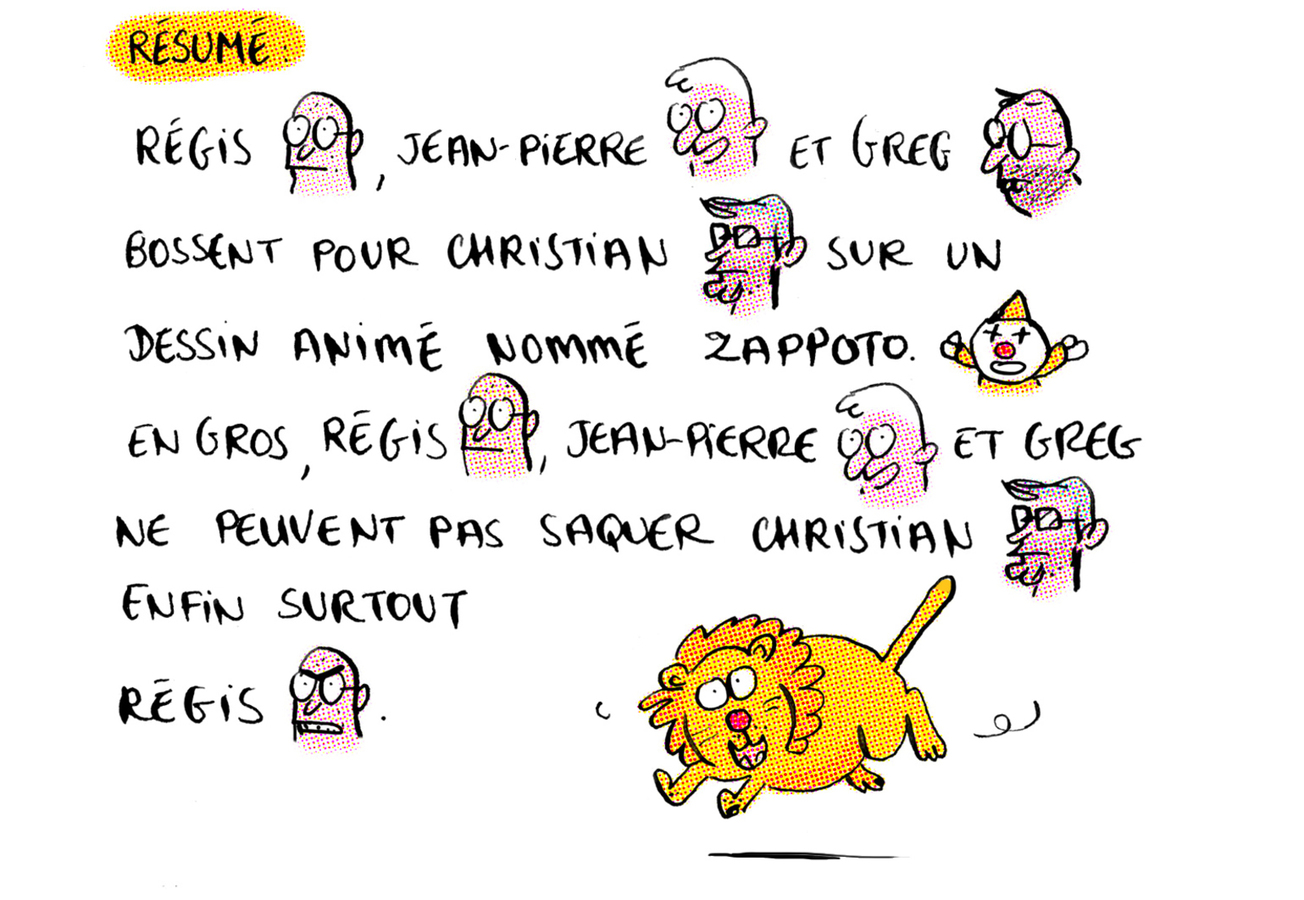 RÉSUMÉ :
RÉGIS , JEAN-PIERRE ET GREG
BOSSENT POUR CHRISTIAN SUR UN
DESSIN ANIMÉ NOMMÉ ZAPPOTO.
EN GROS, RÉGIS , JEAN-PIERRE ET GREG
NE PEUVENT PAS SAQUER CHRISTIAN
ENFIN SURTOUT
RÉGIS .